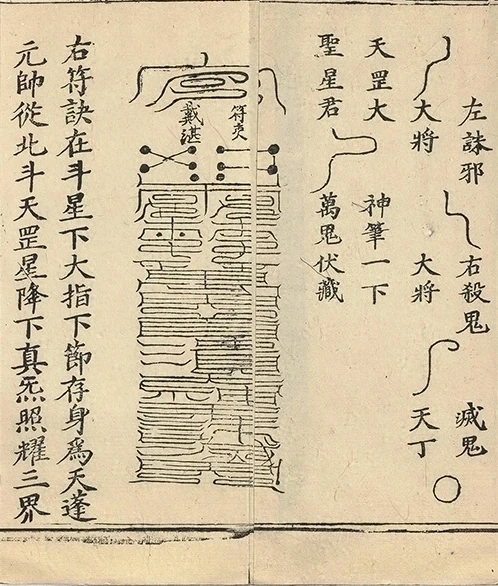 左誅邪 右殺鬼 滅鬼
大將 大將 天丁
天罡大 神筆一下
聖星君 萬鬼伏藏
符吏
戴湛
右符訣在斗星下大指下節存身爲天蓬
元帥從北斗天罡星降下真炁照耀三界